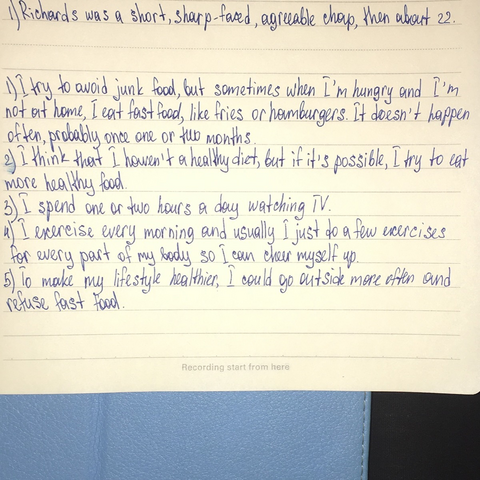 1) Richards was a short, sharp-faced, agreeable chap, then about 22.
1) I try to avoid junk food, but sometimes when I'm hungry and I'm
not at home, I eat fast food, like fries or hamburgers. It doesn't happen
often, probably once one or two months.
2) I think that I haven't a healthy diet, but if it's possible, I try to eat
more healthy food.
3) I spend one or two hours a day watching TV.
4) I exercise every morning and usually I just do a few exercises
for every part of my body so I can cheer myself up.
5) To make my lifestyle healthier, I could go outside more often and
refuse fast food.
Recording start from here